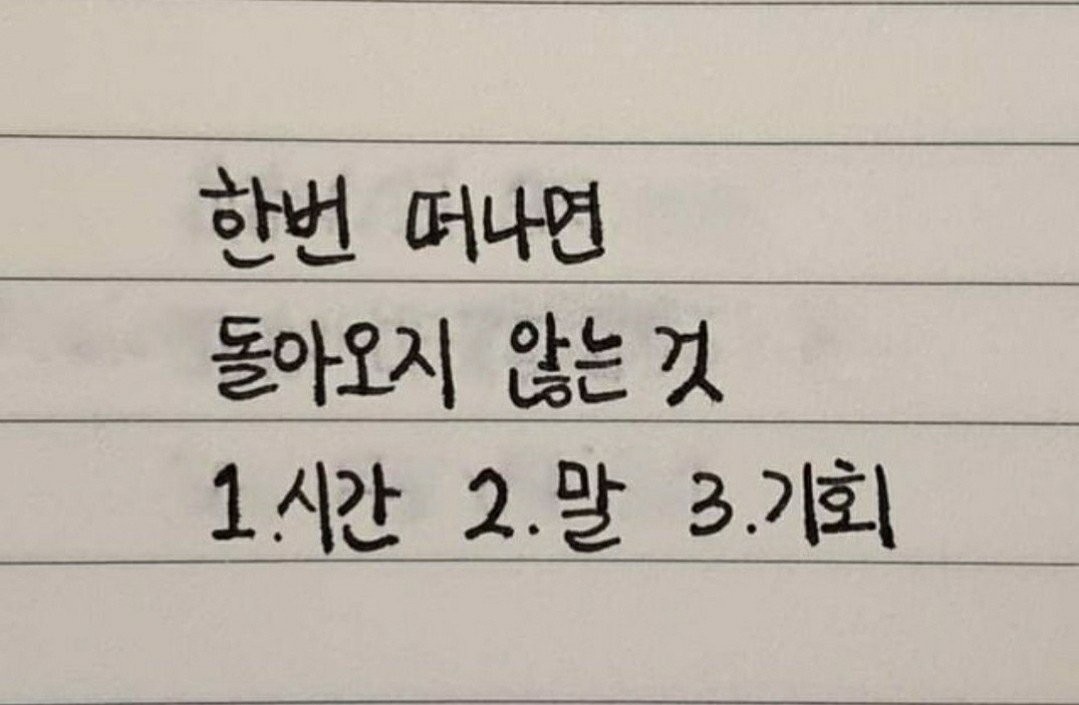 한번 떠나면
돌아오지 않는 것
1.시간 2.말 3.기회